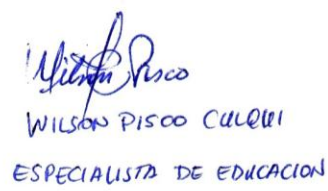 Wilson Pisco
WILSON PISCO CULQUI
ESPECIALISTA DE EDUCACION